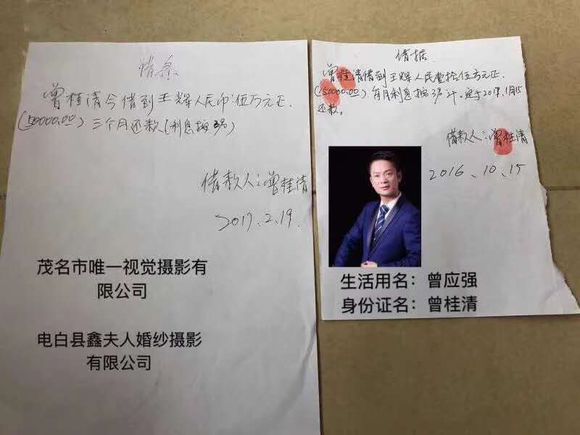 借条
曾桂清今借到王辉人民币伍万元正
(50000.00)三个月还款(利息按3分)
借款人:曾桂清
2017.2.19.
茂名市唯一视觉摄影有
限公司
电白县鑫夫人婚纱摄影
有限公司
借据
曾桂清借到王辉人民壹拾伍万元正
(150000.00)每月利息按3分计.定于2017.1月15
还款.
借款人:曾桂清
2016.10.15
生活用名:曾应强
身份证名:曾桂清